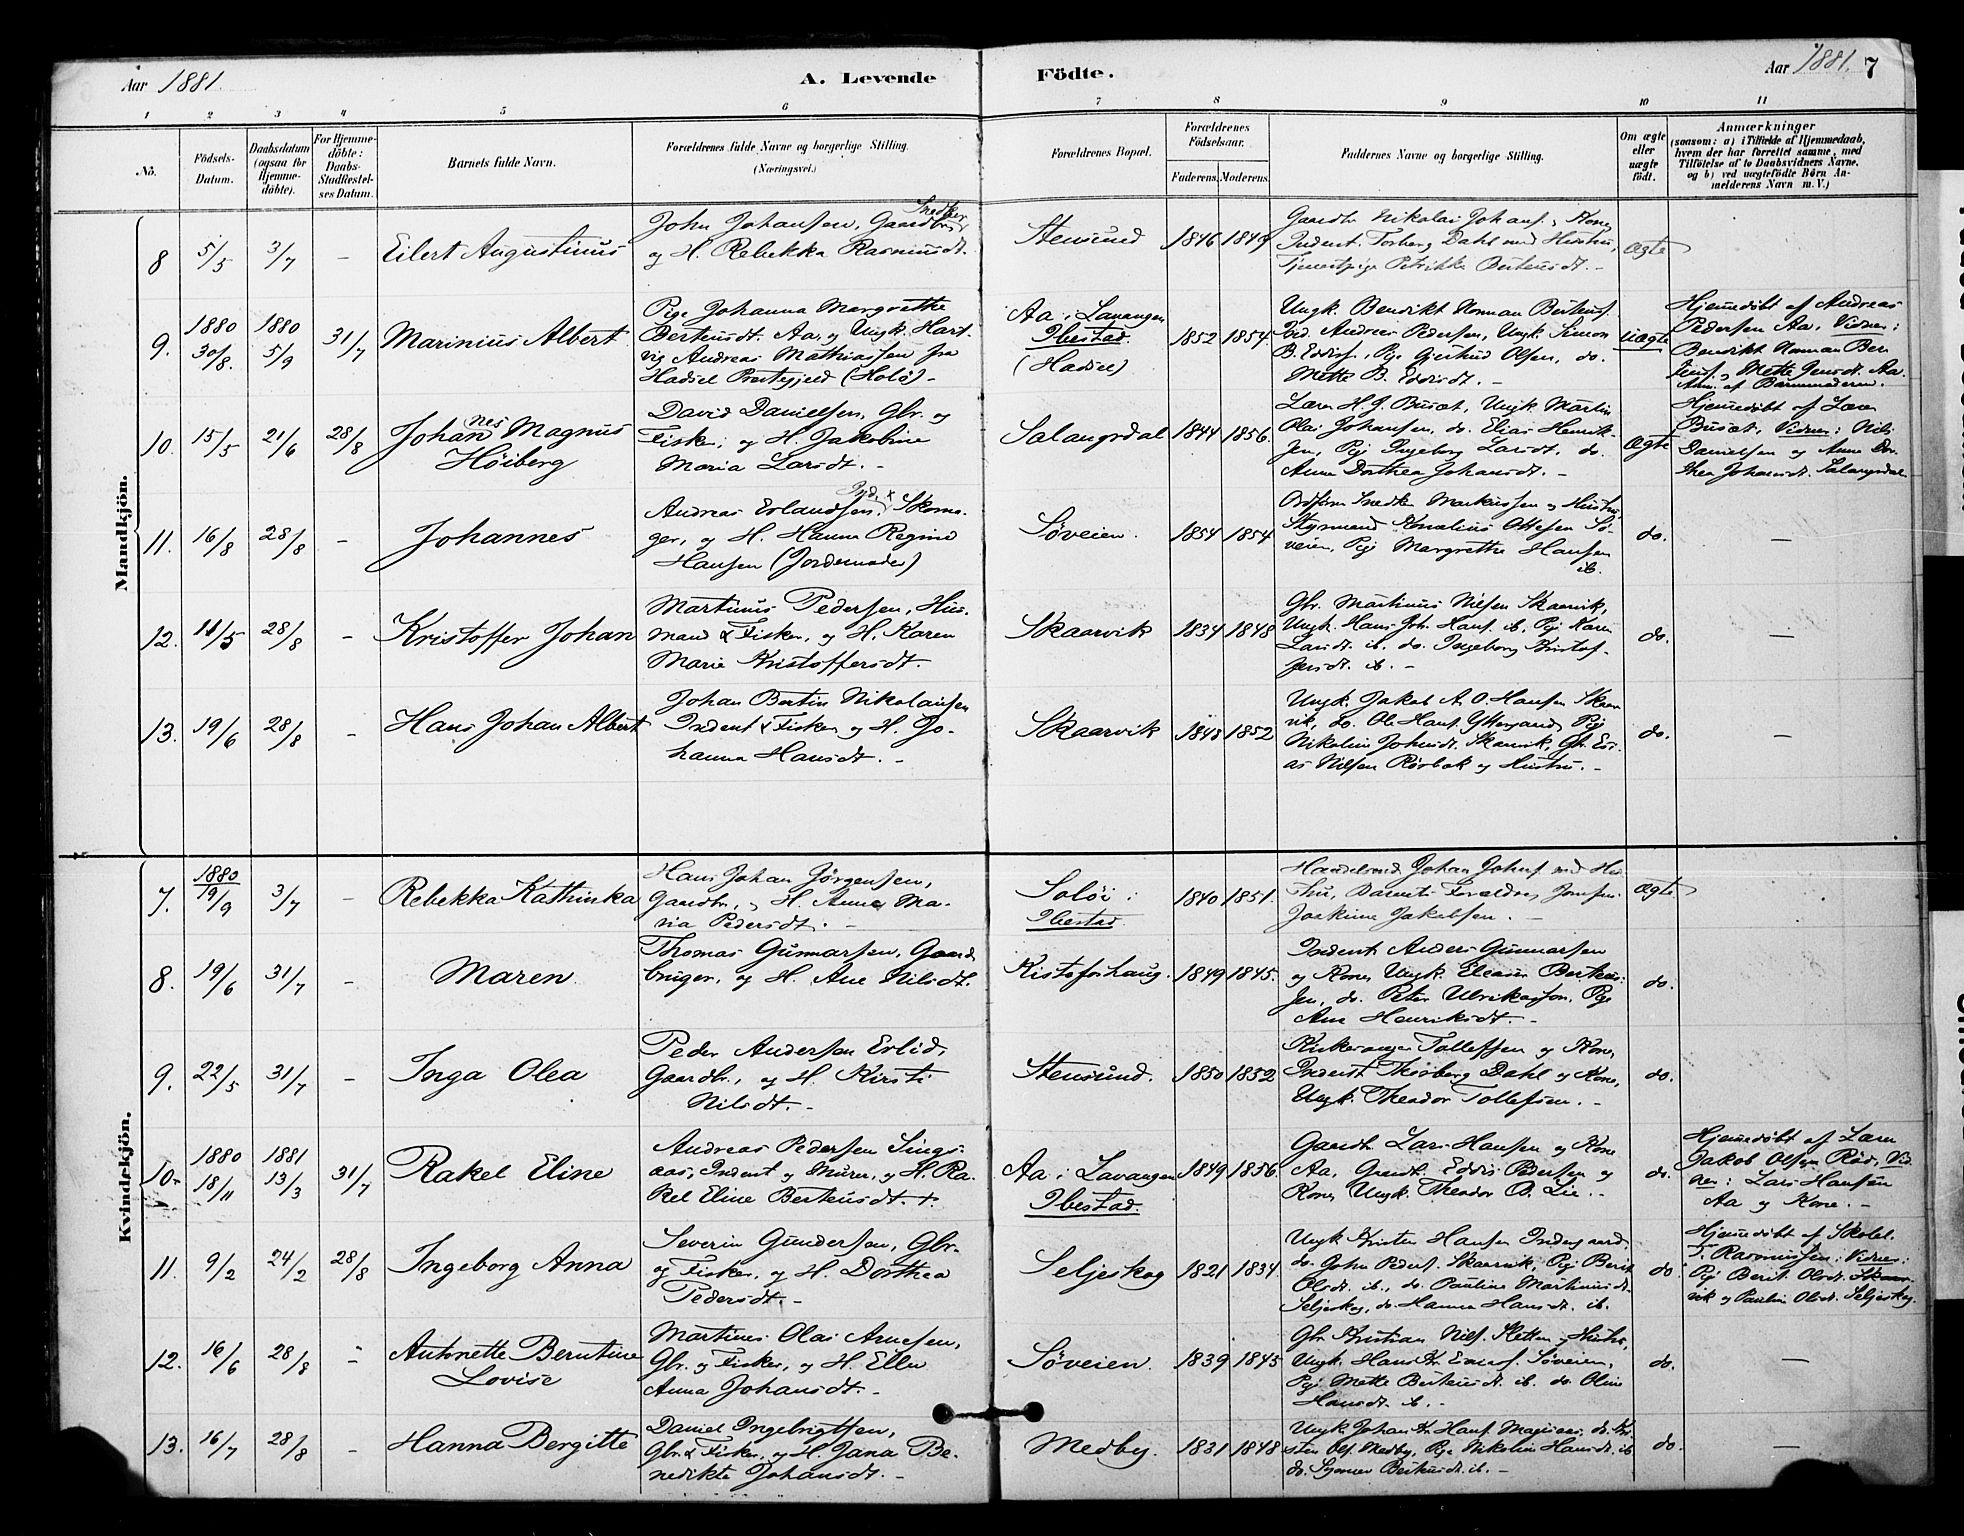 Aar 1881.
A. Levende
Födte.
Aar 1881.
7
1 2 3 4 5 6 7 8 9 10 11
No.
Födsels-
Datum.
Daabsdatum
(ogsaa for
Hjemme-
döbte).
For Hjemme-
döbte:
Daabs-
Stadfæstel-
ses Datum.
Barnets fulde Navn.
Forældrenes fulde Navne og borgerlige Stilling.
(Næringsvei.)
Forældrenes Bopæl.
Forældrenes
Födselsaar.
Faderens. Moderens.
Faddernes Navne og borgerlige Stilling.
Om ægte
eller
uægte
födt.
Anmærkninger
(saasom: a) i Tilfælde af Hjemmedaab,
hvem der har forrettet samme, med
Tilföielse af to Daabsvidners Navne,
og b) ved uægtefödte Börn An-
melderens Navn m. V.)
Mandkjön.
8 5/5 3/7 - Eilert Augustinus
John Johansen, Gaardbr Snedker
og H. Rebekka Rasmusdt.
Stensund 1846 1849
Gaardbr Nikolai Johans. Kone,
Inderst. Torberg Dahl med Hustru,
Tjenestpige Petrikke Berteusdt. -
Ægte
9. 1880 30/8. 1880 5/9 31/7 Marinius Albert
Pige Johanna Margrethe
Berteusdt. Aa, og Ungk. Hart-
vig Andreas Mathiassen fra
Hadsel Præstegjeld (Hole) -
Aa i Lavangen
Ibestad.
(Hadsel)
1852 1854
Ungk. Benedikt Norman Berteus.
Ind. Andreas Pedersen, Ungk. Simon
B. Eddisf., Pige Gjertrud Olsen, do.
Mette B. Eddisdt. -
Uægte
Hjemmedöbt af Andreas
Pedersen Aa, Vidner:
Benedikt Norman Ber
teus. og Mette Jensdt. Aa.
Anm. af Barnemoderen.
10. 15/5 21/6 28/8 Johannes Magnus
Höiberg
David Danielsen, Gbr. og
Fisker, og H. Jakobine
Maria Larsdt. -
Salangsdal 1844 1856.
Lærer H. J. Busæt, Ungk. Martin
Olai Johansen, do. Elias Henrik-
sen, Pige Ingeborg Larsdt. do.
Anne Dorthea Johansdt. -
Ægte
Hjemmedöbt af Lærer
Busæt, Vidner: Nils
Danielsen og Anne Dor-
thea Johansdt. Salangsdal
11. 16/8 28/8 - Johannes
Andreas Erlandsen, Skoma-
ger, og H. Hanna Regine
Hansen (Jordemoder)
Söveien. 1854 1854
Ordförer Snedker Markussen og Hustru,
Styrmand Kornelius Ottesen Sö-
veien, Pige Margrethe Hansen
ib.
do. -
12. 11/5 28/8 - Kristoffer Johan
Martinus Pedersen, Hus-
mand & Fisker, og H. Karen
Marie Kristoffersdt.
Skaarvik 1834 1848
Gbr. Martinus Nilsen Skaarvik,
Ungk. Hans Joh. Hans. ib. Pige Karen
Larsdt. ib. do. Ingeborg Kristof-
fersdt. ib. -
do. -
13. 19/6 28/8 - Hans Johan Albert
Johan Bertin Nikolaisen
Inderst & Fisker, og H. Jo-
hanna Hansdt. -
Skaarvik 1848 1852
Ungk. Jakob A. O. Hansen Skaar
vik, do. Ole Hans. Yttergaard, Pige
Nikoline Johnsdt. Skaarvik, Gbr. Es-
as Nilsen Rörbak og Hustru. -
do. -
Kvindekjön.
7. 1880 19/9 3/7 - Rebekka Kathinka
Hans Johan Jörgensen,
Gaardbr., og H. Anne Ma-
ria Pedersdt. -
Salöi i
Ibestad.
1840 1851.
Handelsmd Johan Johns. med Hu-
stru, Barnets Forældre,
Joakime Jakobsen. -
Ægte
8. 19/6 31/7 - Maren
Thomas Gunnarsen, Gaard
bruger, og H. Ane Nilsdt.
Kistefoshaug. 1849 1845.
Inderst Anders Gunnarsen
og Kone, Ungk. Eleasar Berteus-
sen, do. Peter Ulriksson, Pige
Ane Henriksdt. -
do.
9. 22/5 31/7 - Inga Olea
Peder Andersen Erlid,
Gaardbr., og H. Kirsti
Nilsdt. -
Stensund. 1850 1852
Kirkesanger Tollefsen og Kone,
Inderst Thorberg Dahl og Kone,
Ungk. Theodor Tollefsen. -
do.
10. 1880 18/11 1881 13/3 31/7 Rakel Eline
Andreas Pedersen Sings-
aas, Inderst og Murer, og H. Ra-
kel Eline Berteusdt. +
Aa i Lavangen
Ibestad.
1849 1856.
Gaardb. Lars Hansen og Kone
Aa, Gaardb. Eddis Pedersen og
Kone, Ungk. Theodor O. Lie. -
do.
Hjemmedöbt af Lærer
Jakob Olsen Röd, Vid
ner: Lars Hansen
Aa og Kone. -
11. 9/2 24/2 28/8 Ingeborg Anna
Severin Gundersen, Gbr.
og Fisker, og H. Dorthea
Pedersdt. -
Seljeskog 1821 1834.
Ungk Kristen Hansen Indergaard,
do. John Peders. Skaarvik, Pige Berit
Olsdt. ib., do. Pauline Martinusdt.
Seljeskog, do. Hanna Hansdt. ib.
do.
Hjemmedöbt af Skolel.
T. Rasmussen: Vidner:
Pige Berit Olsdt. Skaar-
vik og Pauline Olsdt. Seljeskog.
12. 16/6 28/8 - Antonette Berntine
Lovise
Martinus Olai Arnesen,
Gbr. og Fisker, og H. Ellen
Anna Johansdt. -
Söveien. 1839 1845
Gbr. Kristian Nils. Sletten og Hustru,
Ungk. Hans Kr. Enoss. Söveien,
Pige Mette Berteusdt. ib. do. Oline
Hansdt. ib. -
do. -
13. 16/7 28/8 - Hanna Bergitte
Daniel Ingebrigtsen,
Gbr. & Fisker, og H. Jana Be-
nedikte Johansdt. -
Medby. 1831 1848
Ungk. Johan Kr. Hans. do. Kri-
sten Ols. Medby, Pige Nikoline Hansdt. ib
do. Berteusdt. ib. -
do. -